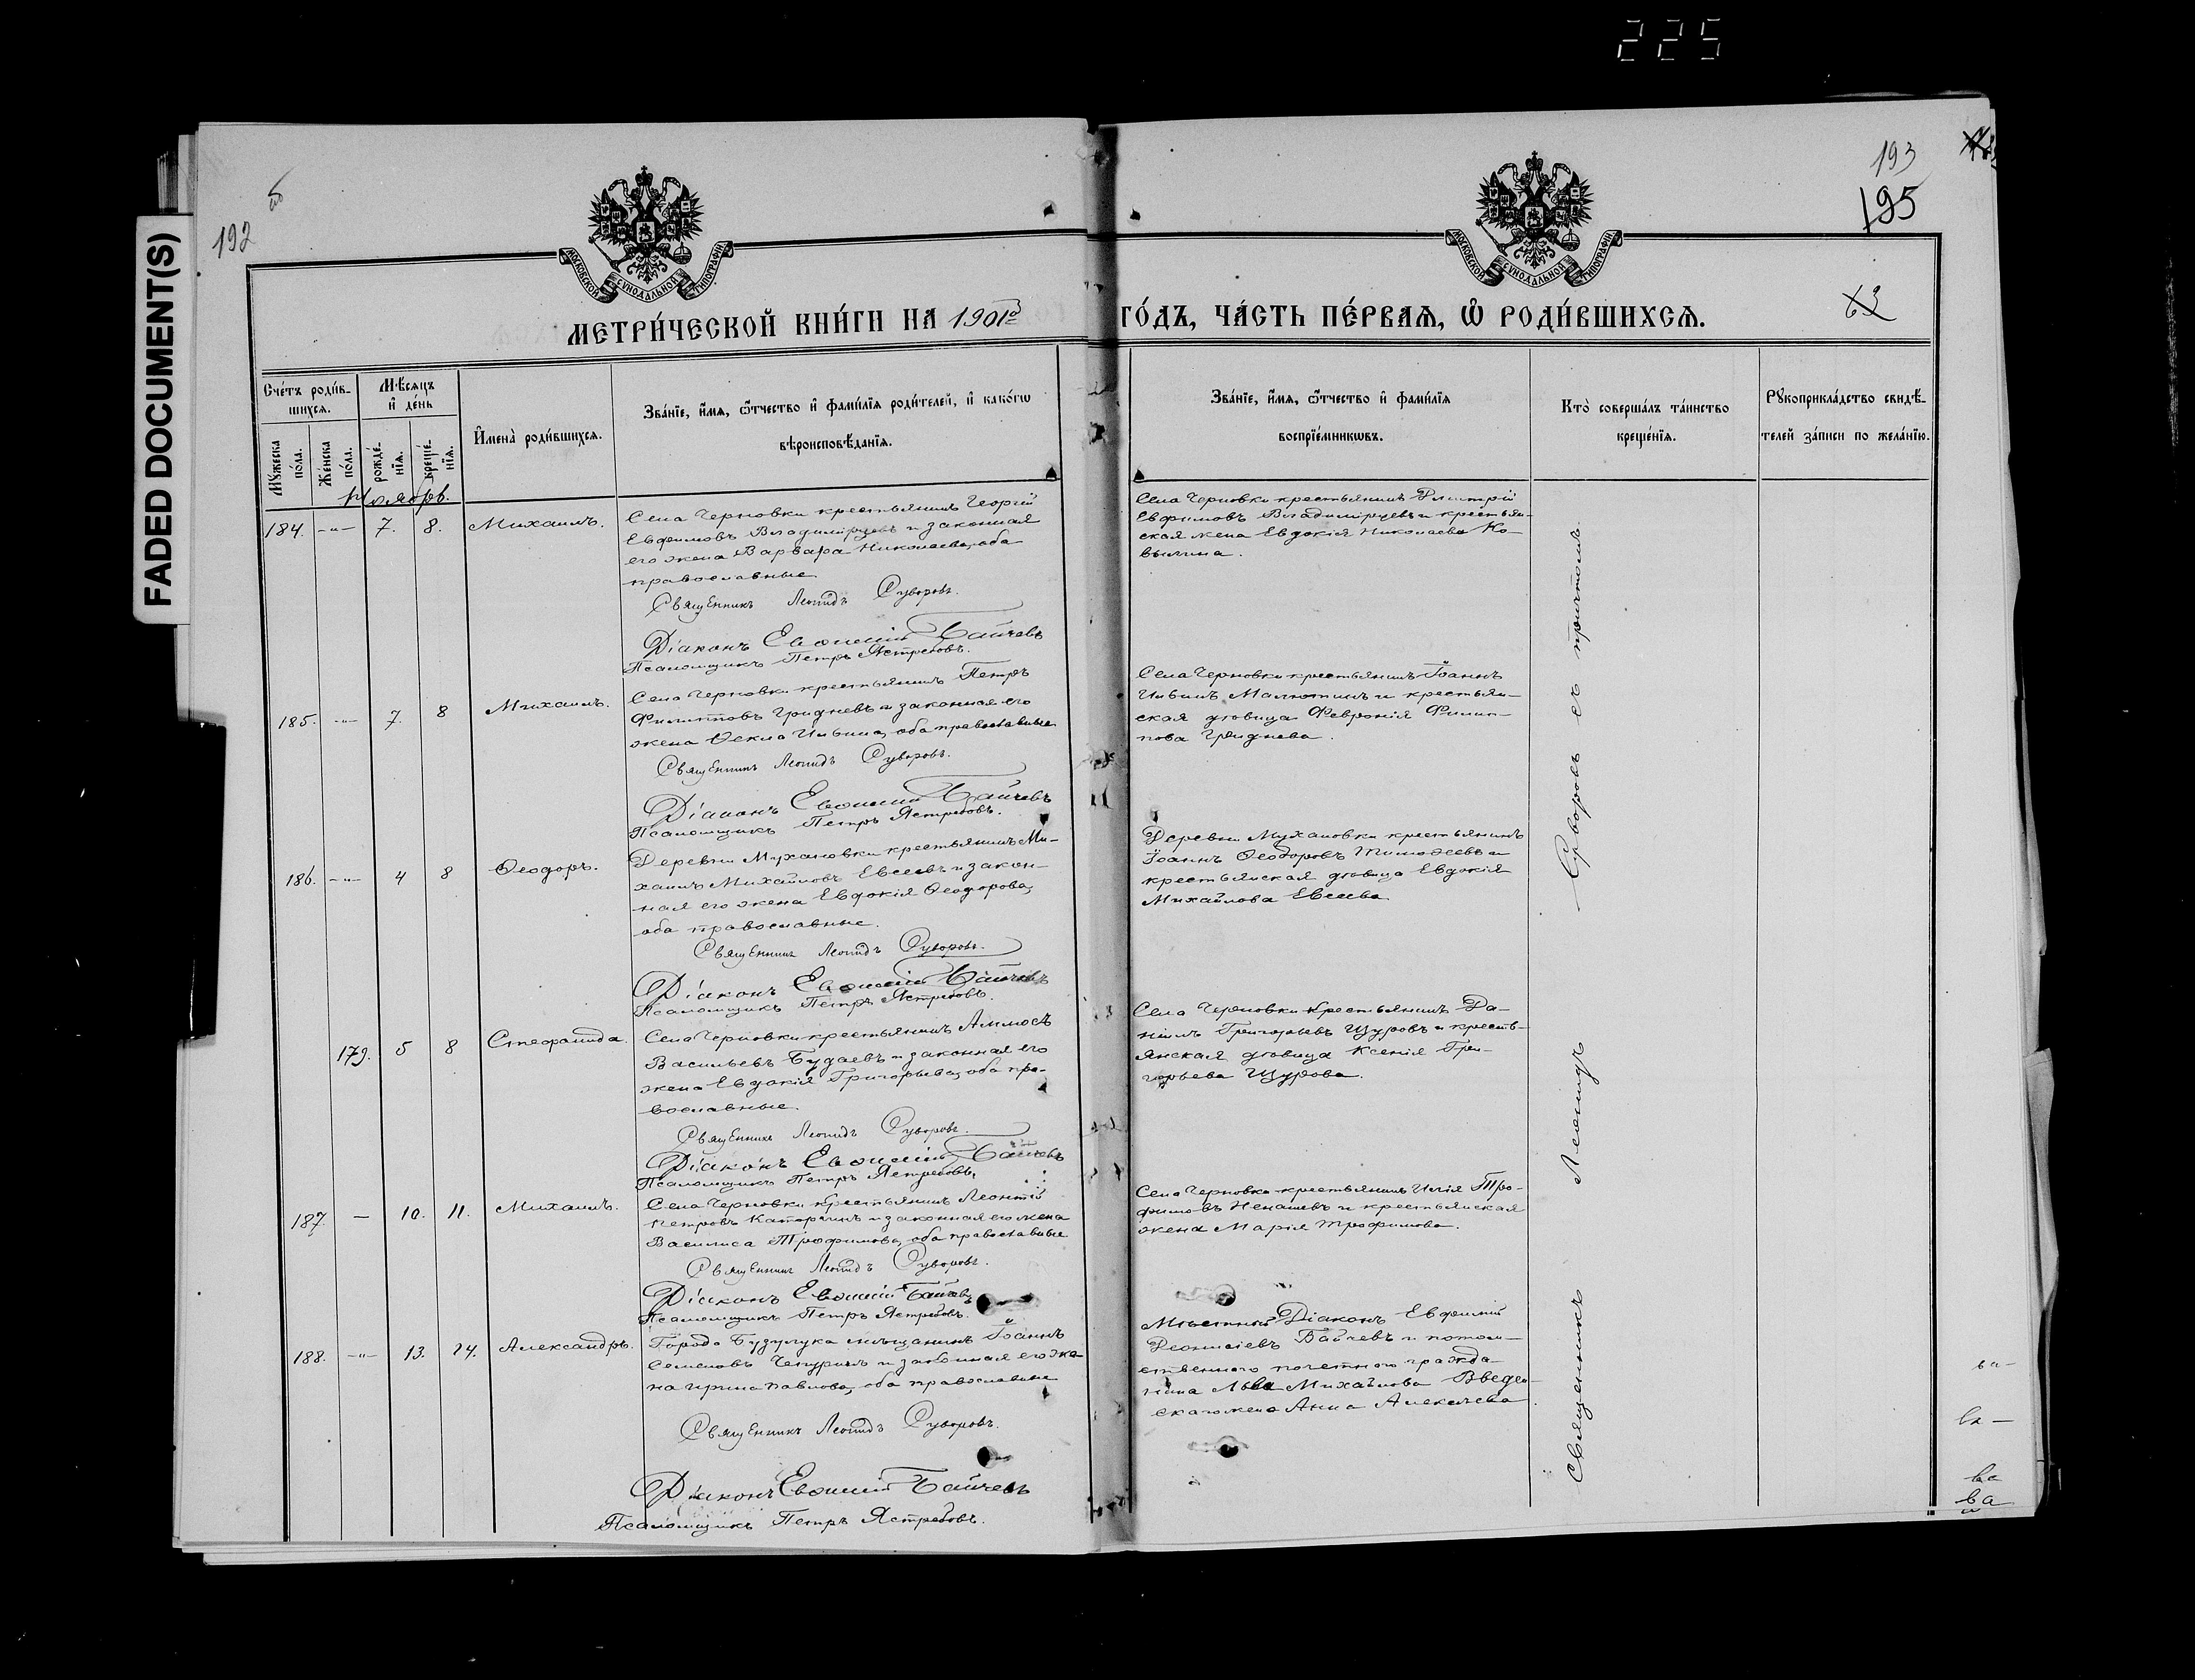 225
FADED DOCUMENT(S)
192
193
195
МОСКОВСКОЙ СУНОДАЛЬНОЙ ТИПОГРАФІИ
МОСКОВСКОЙ СУНОДАЛЬНОЙ ТИПОГРАФІИ
МЕТРИ́ЧЕСКОЙ КНИ́ГИ НА 1901й ГО́ДЪ, ЧА́СТЬ ПЕ́РВАѦ, Ѡ҆ РОДИ́ВШИХСѦ.
Сче́тъ роди́в-
шихсѧ.
Мѣ́сѧцъ
и҆ де́нь
Мꙋ́жеска по́ла.
Же́нска по́ла.
рожде́-
нїѧ.
креще́-
нїѧ.
И҆мена̀ роди́вшихсѧ.
Зва́нїе, и҆́мѧ, ѻ҆́тчество и҆ фами́лїѧ роди́телей, и҆ како́гѡ
вѣроисповѣ́данїѧ.
Зва́нїе, и҆́мѧ, ѻ҆́тчество и҆ фами́лїѧ
воспрїе́мникѡвъ.
Кто̀ соверша́лъ та́инство
креще́нїѧ.
Рꙋкоприкла́дство свидѣ́-
телей за́писи по жела́нїю.
Ноябрь.
184. -"- 7. 8. Михаилъ.
Села Черновки крестьянинъ Георгій
Евфимовъ Владимірцевъ и законная
его жена Варвара Николаева, оба
православные.
Священникъ Леонидъ Суворовъ.
Діаконъ Евѳимій Байчевъ
Псаломщикъ Петръ Ястребовъ.
Села Черновки крестьянинъ Димитрій
Евфимовъ Владимірцевъ и крестьян-
ская жена Евдокія Николаева Ко-
вылина.
185. -"- 7. 8 Михаилъ.
Села Черновки крестьянинъ Петръ
Филипповъ Гридневъ и законная его
жена Ѳекла Ивина, оба православные
Священникъ Леонидъ Суворовъ.
Діаконъ Евѳимій Байчевъ
Псаломщикъ Петръ Ястребовъ.
Села Черновки крестьянинъ Іоаннъ
Ивинъ Малютинъ и крестьян-
ская дѣвица Февронія Филип-
пова Гриднева.
186. -"- 4 8 Ѳеодоръ.
Деревни Мухановки крестьянинъ Ми-
хаилъ Михайловъ Евсеевъ и закон-
ная его жена Евдокія Ѳеодорова,
оба православные.
Священникъ Леонидъ Суворовъ.
Діаконъ Евѳимій Байчевъ
Псаломщикъ Петръ Ястребовъ.
Деревни Мухановки крестьянинъ
Іоаннъ Ѳеодоровъ Тимоѳеевъ и
крестьянская дѣвица Евдокія
Михайлова Евсеева
179. 5 8 Стефанида.
Села Черновки крестьянинъ Аммосъ
Васильевъ Будаевъ и законная его
жена Евдокія Григорьева, оба пра-
вославные.
Священникъ Леонидъ Суворовъ.
Діаконъ Евѳимій Байчевъ
Псаломщикъ Петръ Ястребовъ.
Села Черновки крестьянинъ Да-
ніилъ Григорьевъ Щуровъ и кресть-
янская дѣвица Ксенія Гри-
горьева Щурова.
187. — 10. 11. Михаилъ.
Села Черновки крестьянинъ Леонтій
Петровъ Каторгинъ и законная его жена
Василиса Трофимова, оба православные
Священникъ Леонидъ Суворовъ.
Діаконъ Евѳимій Байчевъ
Псаломщикъ Петръ Ястребовъ.
Села Черновки крестьянинъ Илія Тро-
фимовъ Ненашевъ и крестьянская
жена Марія Трофимова.
188. -"- 13. 14. Александръ.
Города Бузулука мѣщанинъ Іоаннъ
Семеновъ Чепуринъ и законная его же-
на Ирина Павлова, оба православные
Священникъ Леонидъ Суворовъ.
Діаконъ Евѳимій Байчевъ
Псаломщикъ Петръ Ястребовъ.
Мѣстный Діаконъ Евфимій
Діонисіевъ Байчевъ и потом-
ственнаго почетнаго гражда-
нина Льва Михайлова Введен-
скаго жена Анна Алексеева.
Священникъ Леонидъ Суворовъ съ причтомъ
ва